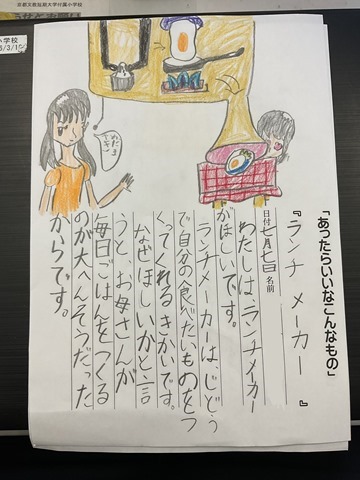 「あったらいいなこんなもの」
『ランチメーカー』
日付 七月七日 名前
わたしは、ランチメーカー
がほしいです。
ランチメーカーは、じどう
で自分の食べたいものをつ
くってくれるきかいです。
なぜほしいかと言
うと、お母さんが
毎日ごはんをつくる
のが大へんそうだった
からです。
めだま
やき
京都文教短期大学付属小学校
小学校